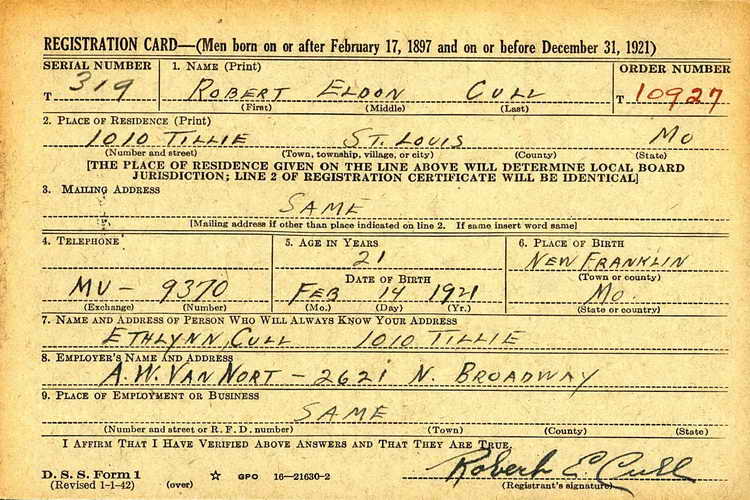 REGISTRATION CARD—(Men born on or after February 17, 1897 and on or before December 31, 1921)
SERIAL NUMBER 1. NAME (Print) ORDER NUMBER
T 319 ROBERT ELDON CULL T 10927
(First) (Middle) (Last)
2. PLACE OF RESIDENCE (Print)
1010 TILLIE ST. LOUIS MO
(Number and street) (Town, township, village, or city) (County) (State)
[THE PLACE OF RESIDENCE GIVEN ON THE LINE ABOVE WILL DETERMINE LOCAL BOARD
JURISDICTION; LINE 2 OF REGISTRATION CERTIFICATE WILL BE IDENTICAL]
3. MAILING ADDRESS
SAME
[Mailing address if other than place indicated on line 2. If same insert word same]
4. TELEPHONE 5. AGE IN YEARS 6. PLACE OF BIRTH
21 NEW FRANKLIN
DATE OF BIRTH (Town or county)
MU- 9370 FEB 14 1921 MO.
(Exchange) (Number) (Mo.) (Day) (Yr.) (State or country)
7. NAME AND ADDRESS OF PERSON WHO WILL ALWAYS KNOW YOUR ADDRESS
ETHLYNN CULL 1010 TILLIE
8. EMPLOYER'S NAME AND ADDRESS
A.W. VAN NORT - 2621 N. BROADWAY
9. PLACE OF EMPLOYMENT OR BUSINESS
SAME
(Number and street or R. F. D. number) (Town) (County) (State)
I AFFIRM THAT I HAVE VERIFIED ABOVE ANSWERS AND THAT THEY ARE TRUE.
D. S. S. Form 1 Robert E. Cull
(Revised 1-1-42) (over) ☆ GPO 16—21630-2 (Registrant's signature)